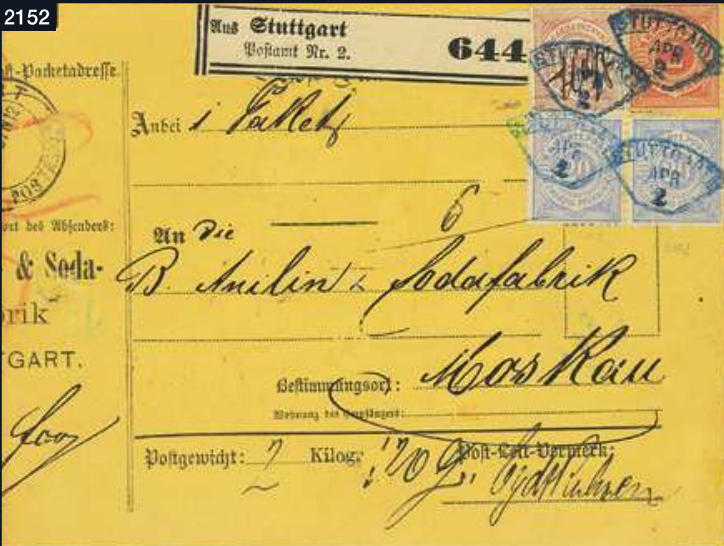 2152
Aus Stuttgart
Postamt Nr. 2.
644
STUTTGART
APR
2
STUTTGART
2
STUTTGART
APR
2
STUTTGART
APR
2
-Packetadresse.
Anbei 1 Paket
6
des Absenders:
An die
& Soda-
B. Anilin & Sodafabrik
rik
TGART.
Bestimmungsort: Moskau
Wohnung des Empfängers:
Postgewicht: 7 Kilogr. 120 g.
Post-Leit-Vermerk:
Eydtkuhnen